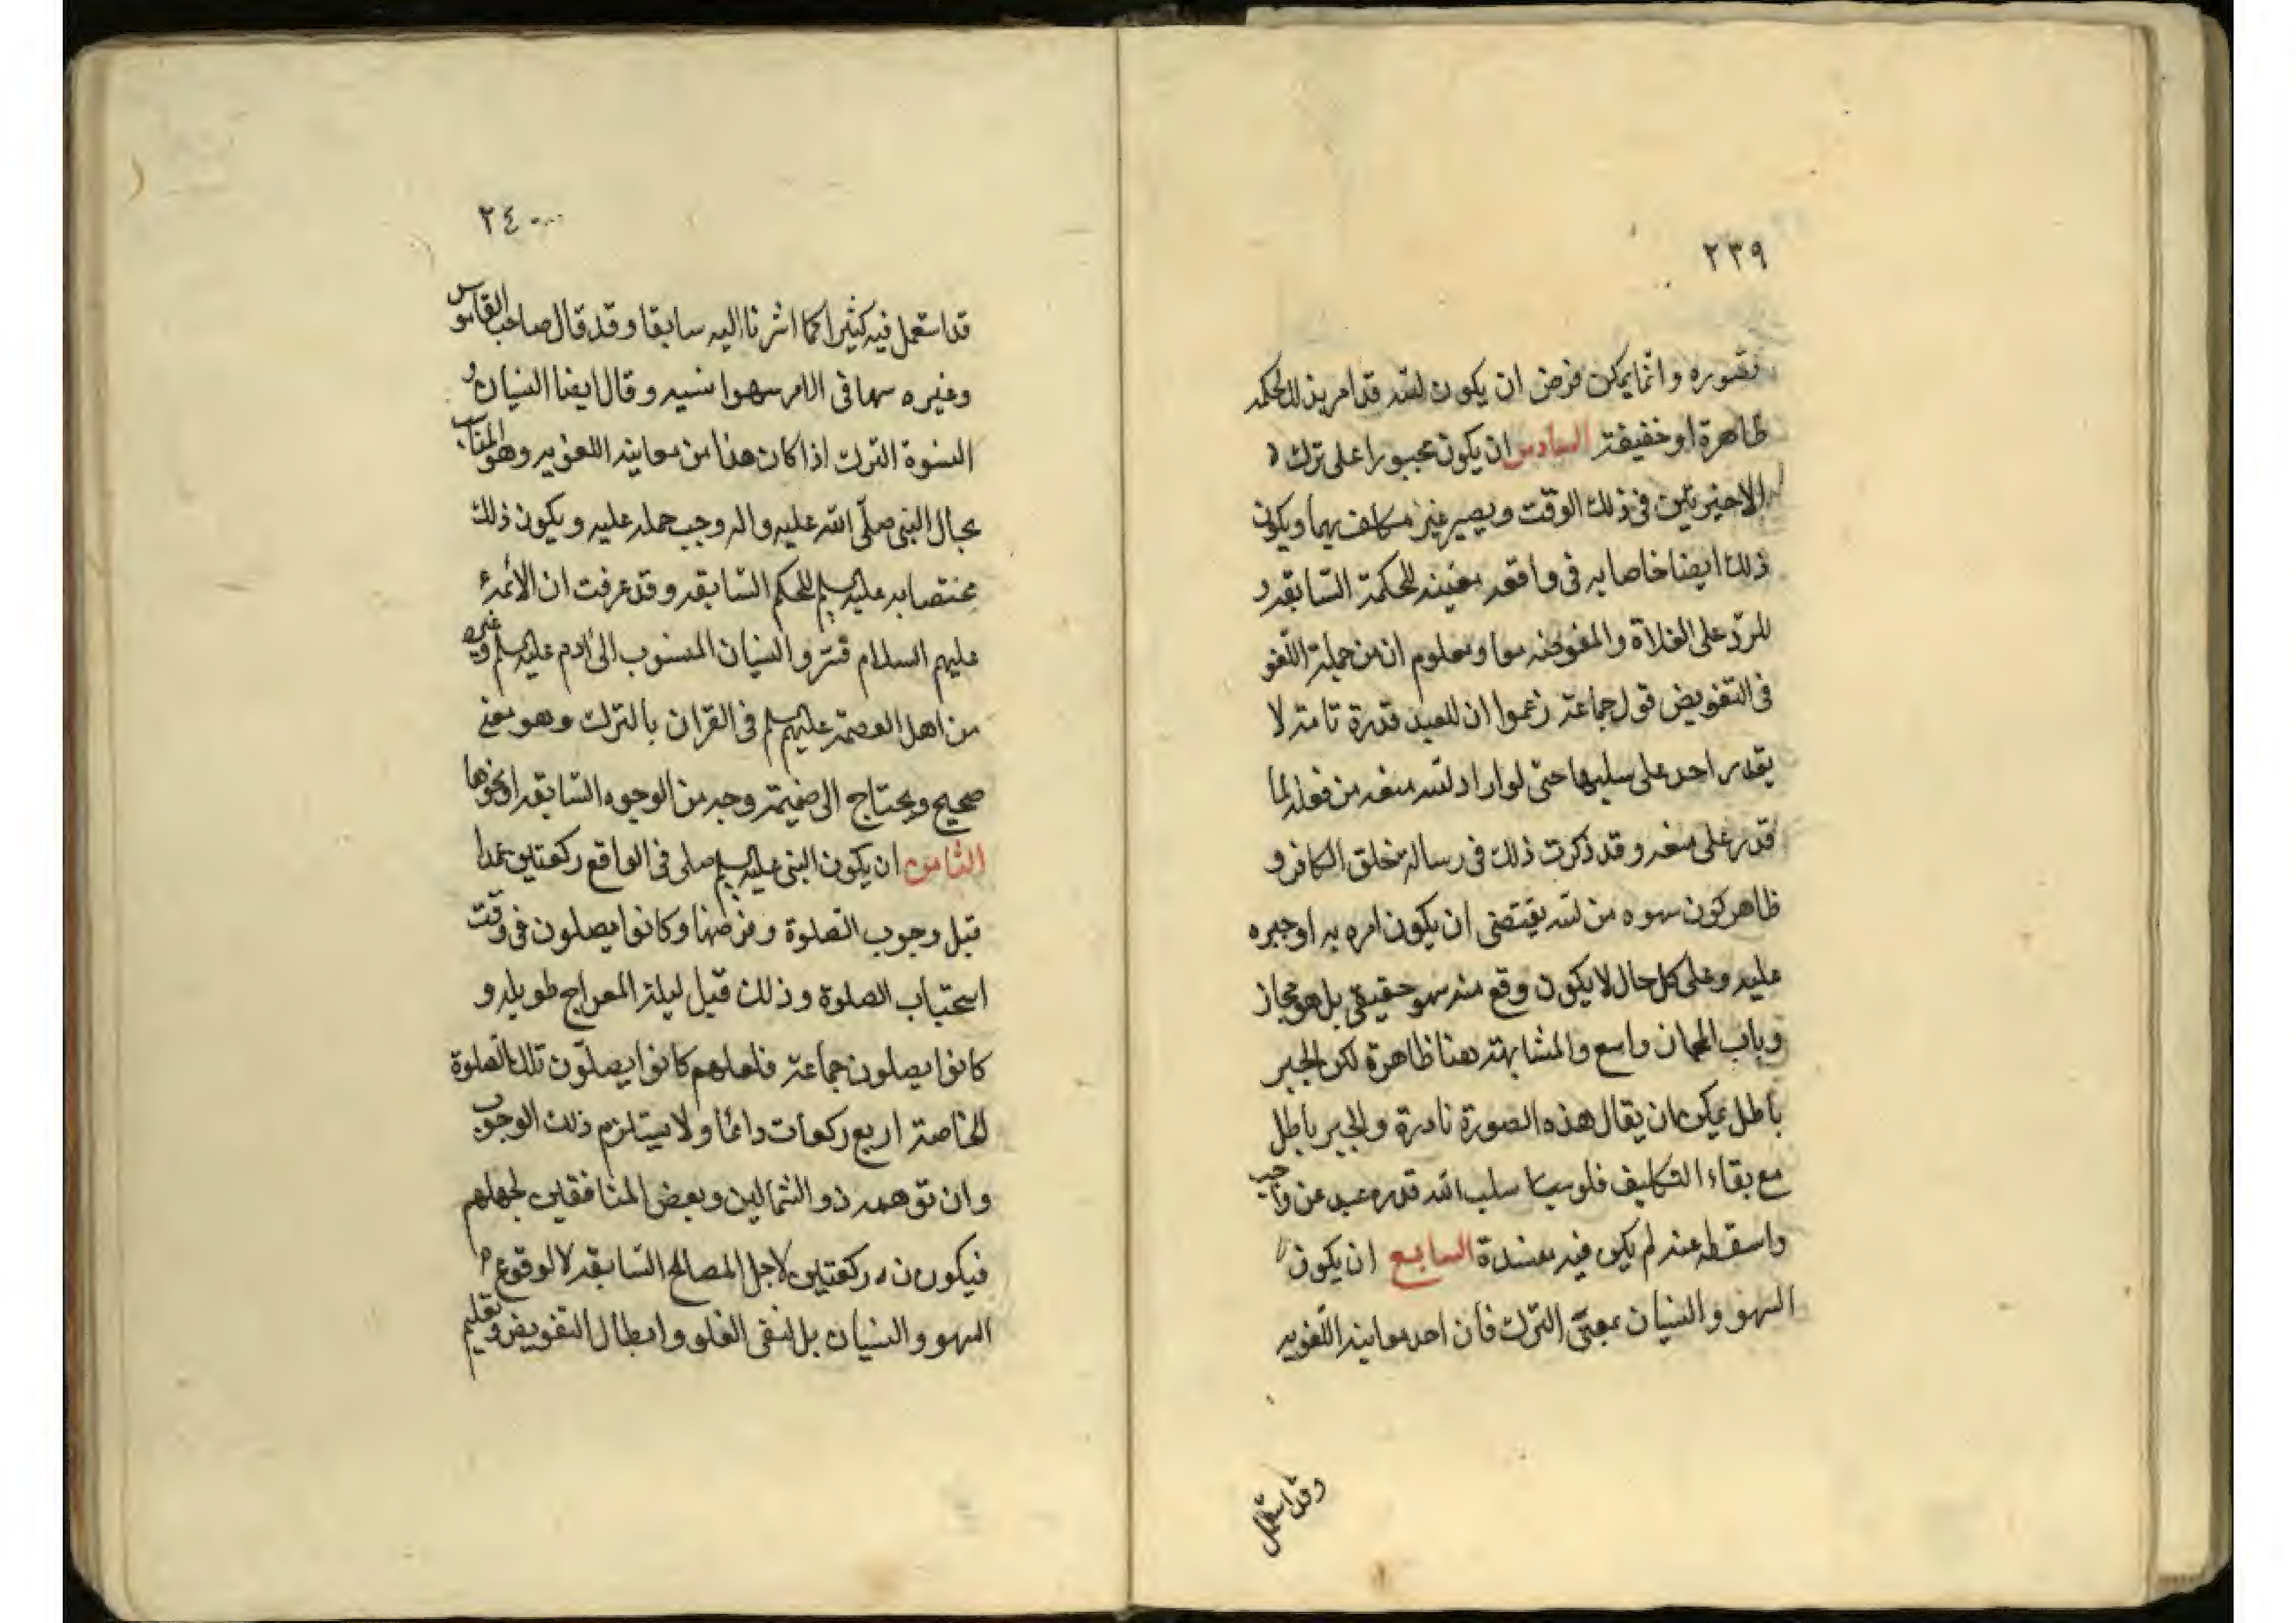 ٢٣٩
تصوره وانما يمكن فرض ان يكون الله قد امر بذلك لحكمة
ظاهرة او خفيفة السادس ان يكون مجبورا على ترك
الاخيرتين في ذلك الوقت ويصير غير مكلف بهما ويكون
ذلك ايضا خاصا به في واقعة معينة للحكمة السابقة و
للرد على الغلاة والمفوضة معا ومعلوم ان من جملة اللغو
في التفويض قول جماعة زعموا ان للعبد قدرة تامة لا
يقدر احد على سلبها حتى لو اراد الله منعه من فعله لما
قدر على منعه وقد ذكرت ذلك في رسالة خلق الكافر و
ظاهر كون سهوه من الله يقتضي ان يكون امره به او جبره
عليه وعلى كل حال لا يكون وقع منه سهو حقيقي بل هو مجاز
وباب المجاز واسع والمشابهة هنا ظاهرة لكن الجبر
باطل يمكن ان يقال هذه الصورة نادرة والجبر باطل
مع بقاء التكليف فلو سلب الله قدره عبد عن واجب
واسقطه عنه لم يكن فيه مفسدة السابع ان يكون
السهو والنسيان بمعنى الترك فان احد معانيه اللغويه
وقد استعمل
٢٤٠
قد استعمل فيه كثيرا كما اشرنا اليه سابقا وقد قال صاحب القاموس
وغيره سها في الامر سهوا نسيه وقال ايضا النسيان و
النسوة الترك اذا كان هذا من معانيه اللغويه وهو المناسب
بحال النبي صلى الله عليه واله وجب حمله عليه ويكون ذلك
مختصا به عليه السلم للحكم السابقه وقد عرفت ان الأئمة
عليهم السلام فسروا النسيان المنسوب الى آدم عليه السلم وغيره
من اهل العصمة عليهم السلم في القران بالترك وهو معنى
صحيح ويحتاج الى ضميمة وجه من الوجوه السابقه او نحوها
الثامن ان يكون النبي عليه السلم صلى في الواقع ركعتين عمدا
قبل وجوب الصلوة وفرضها وكانوا يصلون في وقت
استحباب الصلوة وذلك قبل ليلة المعراج طويله و
كانوا يصلون جماعة فلعلهم كانوا يصلّون تلك الصلوة
الخاصة اربع ركعات دائما ولا يستلزم ذلك الوجوب
وان توهمه ذو الشمالين وبعض المنافقين لجهلهم
فيكون ركعتين لاجل المصالح السابقه لا لوقوع
السهو والنسيان بل لنفي الغلو وابطال التفويض وتعليم